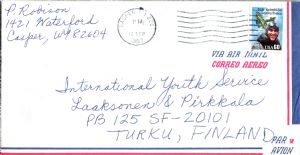 P. Robison
1421 Waterford
Casper, WY 82604
PM
VIA AIR MAIL
CORREO AEREO
USA 60
International Youth Service
Laaksonen & Pirkkala
PB 125 SF-20101
TURKU, FINLAND
PAR AVION